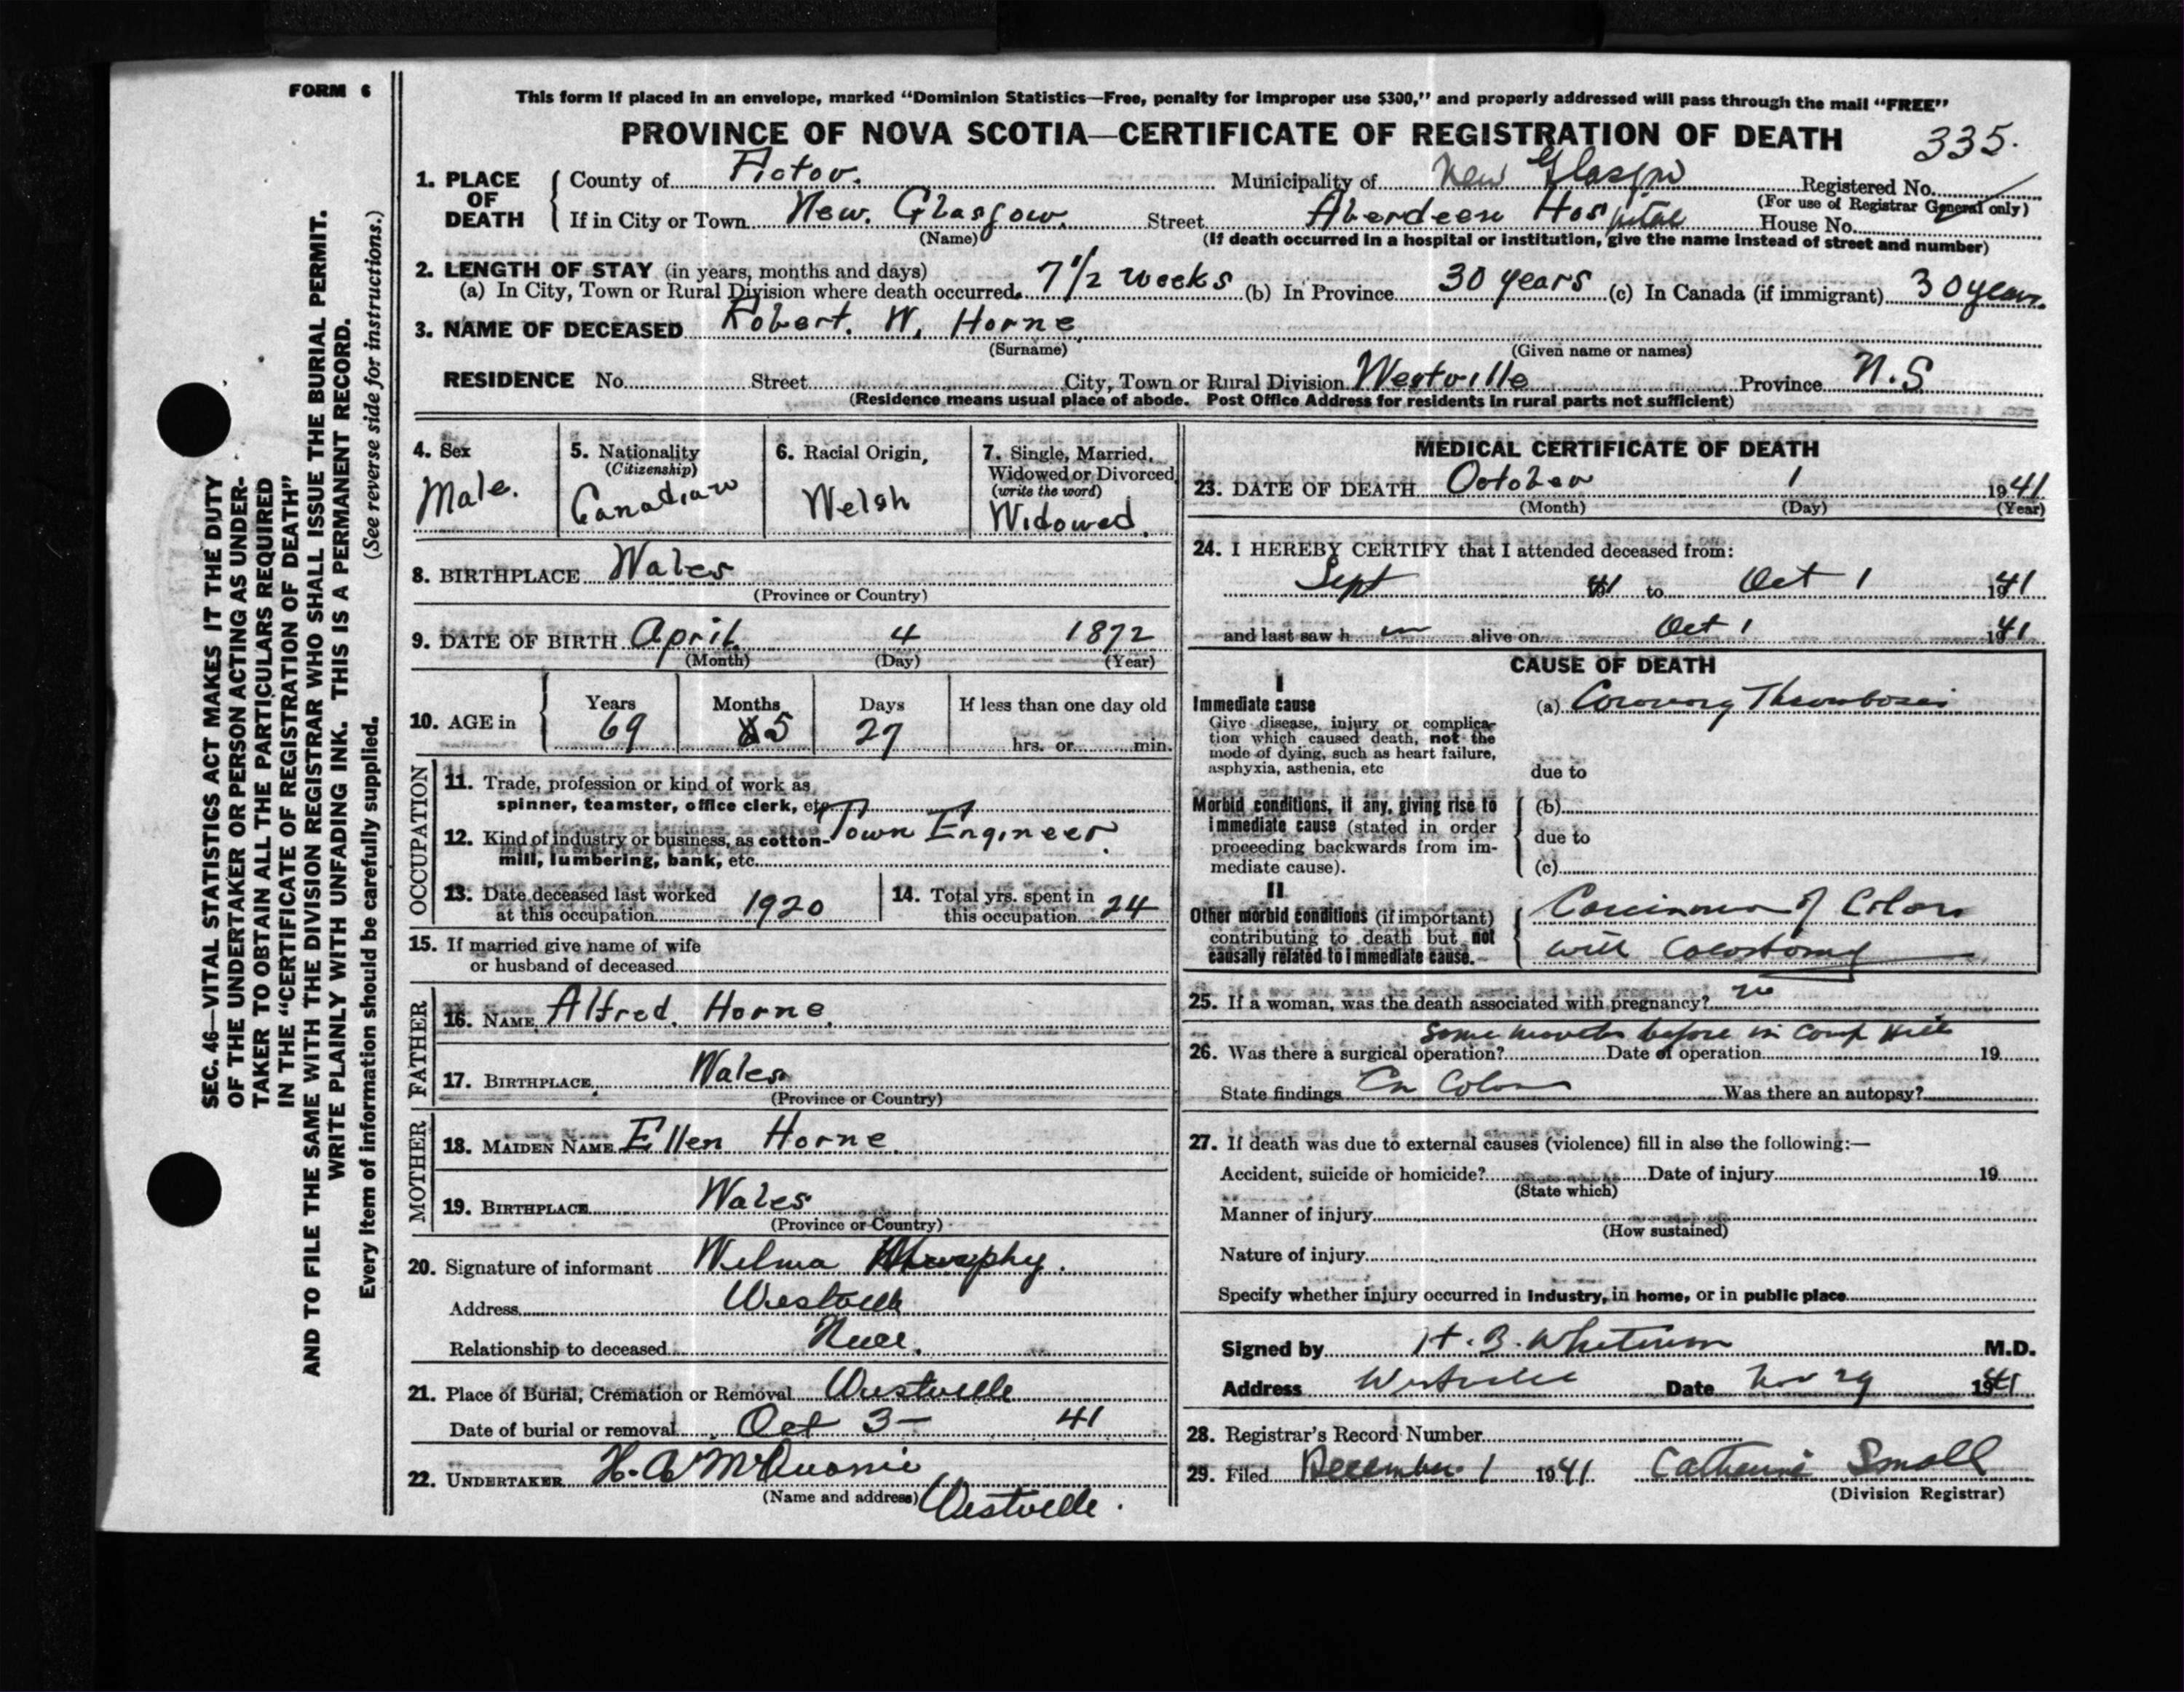 FORM 6
This form if placed in an envelope, marked "Dominion Statistics—Free, penalty for improper use $300," and properly addressed will pass through the mail "FREE"
PROVINCE OF NOVA SCOTIA—CERTIFICATE OF REGISTRATION OF DEATH
335.
1. PLACE OF DEATH
County of Pictou. Municipality of New Glasgow Registered No.
(For use of Registrar General only)
If in City or Town New. Glasgow. Street Aberdeen Hospital House No.
(Name) (If death occurred in a hospital or institution, give the name instead of street and number)
2. LENGTH OF STAY (in years, months and days)
(a) In City, Town or Rural Division where death occurred. 7 1/2 weeks (b) In Province 30 years (c) In Canada (if immigrant) 30 years.
3. NAME OF DECEASED Robert. W. Horne
(Surname) (Given name or names)
RESIDENCE No. Street City, Town or Rural Division Westville Province N.S
(Residence means usual place of abode. Post Office Address for residents in rural parts not sufficient)
4. Sex
Male.
5. Nationality
(Citizenship)
Canadian
6. Racial Origin,
Welsh
7. Single, Married, Widowed or Divorced
(write the word)
Widowed.
8. BIRTHPLACE Wales
(Province or Country)
9. DATE OF BIRTH April. 4 1872
(Month) (Day) (Year)
10. AGE in
Years Months Days If less than one day old
69 5 27 hrs. or min.
OCCUPATION
11. Trade, profession or kind of work as spinner, teamster, office clerk, etc.
Town Engineer.
12. Kind of industry or business, as cotton-mill, lumbering, bank, etc.
13. Date deceased last worked at this occupation 1920
14. Total yrs. spent in this occupation 24
15. If married give name of wife
or husband of deceased
FATHER
16. NAME Alfred. Horne.
17. BIRTHPLACE Wales
(Province or Country)
MOTHER
18. MAIDEN NAME Ellen Horne.
19. BIRTHPLACE Wales
(Province or Country)
20. Signature of informant Wilma Murphy.
Address Westville
Relationship to deceased Niece.
21. Place of Burial, Cremation or Removal Westville
Date of burial or removal Oct 3— 41
22. UNDERTAKER H. A McQuarrie
(Name and address) Westville.
MEDICAL CERTIFICATE OF DEATH
23. DATE OF DEATH October 1 1941
(Month) (Day) (Year)
24. I HEREBY CERTIFY that I attended deceased from:
Sept 41 to Oct 1 1941
and last saw h im alive on Oct 1 1941
CAUSE OF DEATH
I
Immediate cause
Give disease, injury or complication which caused death, not the mode of dying, such as heart failure, asphyxia, asthenia, etc
(a) Coronary Thrombosis
due to
Morbid conditions, if any, giving rise to immediate cause (stated in order proceeding backwards from immediate cause).
(b)
due to
(c)
II
Other morbid conditions (if important) contributing to death but not causally related to immediate cause.
Carcinoma of Colon
with Colostomy
25. If a woman, was the death associated with pregnancy? no
some months before in Camp Hill
26. Was there a surgical operation? Date of operation 19
State findings Ca Colon Was there an autopsy?
27. If death was due to external causes (violence) fill in also the following:—
Accident, suicide or homicide? Date of injury 19
(State which)
Manner of injury
(How sustained)
Nature of injury
Specify whether injury occurred in industry, in home, or in public place
Signed by H. B. Whitman M.D.
Address Westville Date Nov 29 1941
28. Registrar's Record Number
29. Filed December 1 1941. Catherine Small
(Division Registrar)
SEC. 46—VITAL STATISTICS ACT MAKES IT THE DUTY
OF THE UNDERTAKER OR PERSON ACTING AS UNDER-
TAKER TO OBTAIN ALL THE PARTICULARS REQUIRED
IN THE "CERTIFICATE OF REGISTRATION OF DEATH"
AND TO FILE THE SAME WITH THE DIVISION REGISTRAR WHO SHALL ISSUE THE BURIAL PERMIT.
WRITE PLAINLY WITH UNFADING INK. THIS IS A PERMANENT RECORD.
Every item of information should be carefully supplied. (See reverse side for instructions.)